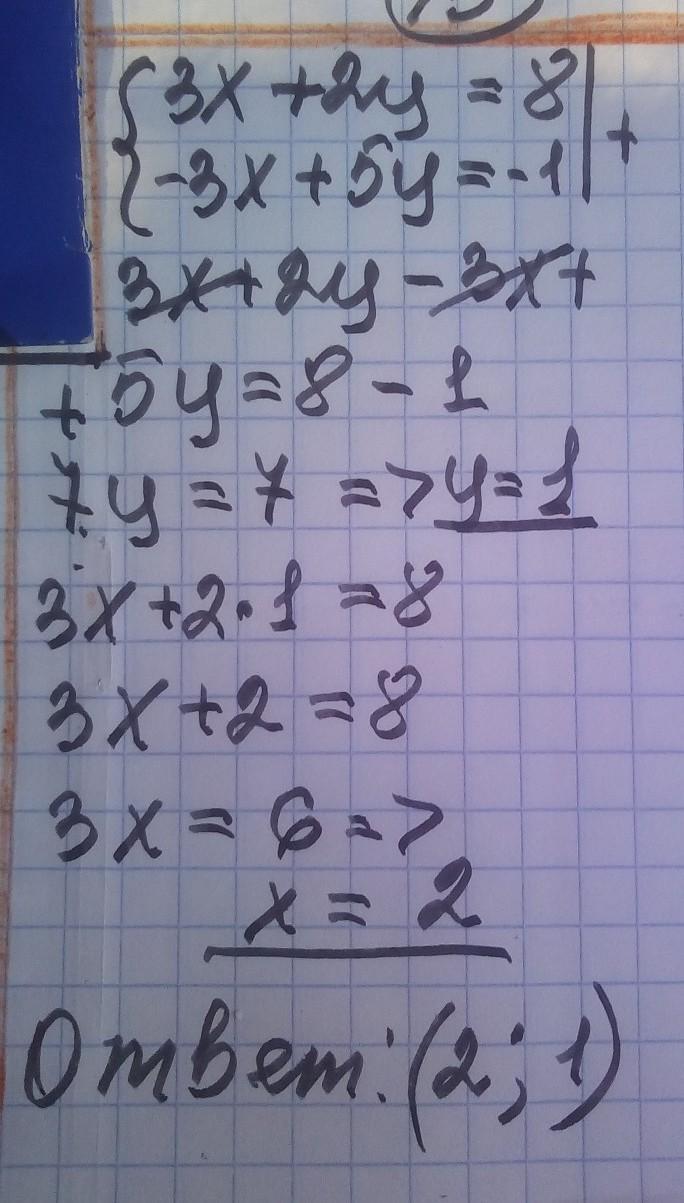 {3x + 2y = 8 | +
{-3x + 5y = -1 |
3x + 2y - 3x +
+ 5y = 8 - 1
7y = 7 => y = 1
3x + 2 · 1 = 8
3x + 2 = 8
3x = 6 =>
x = 2
Ответ: (2; 1)